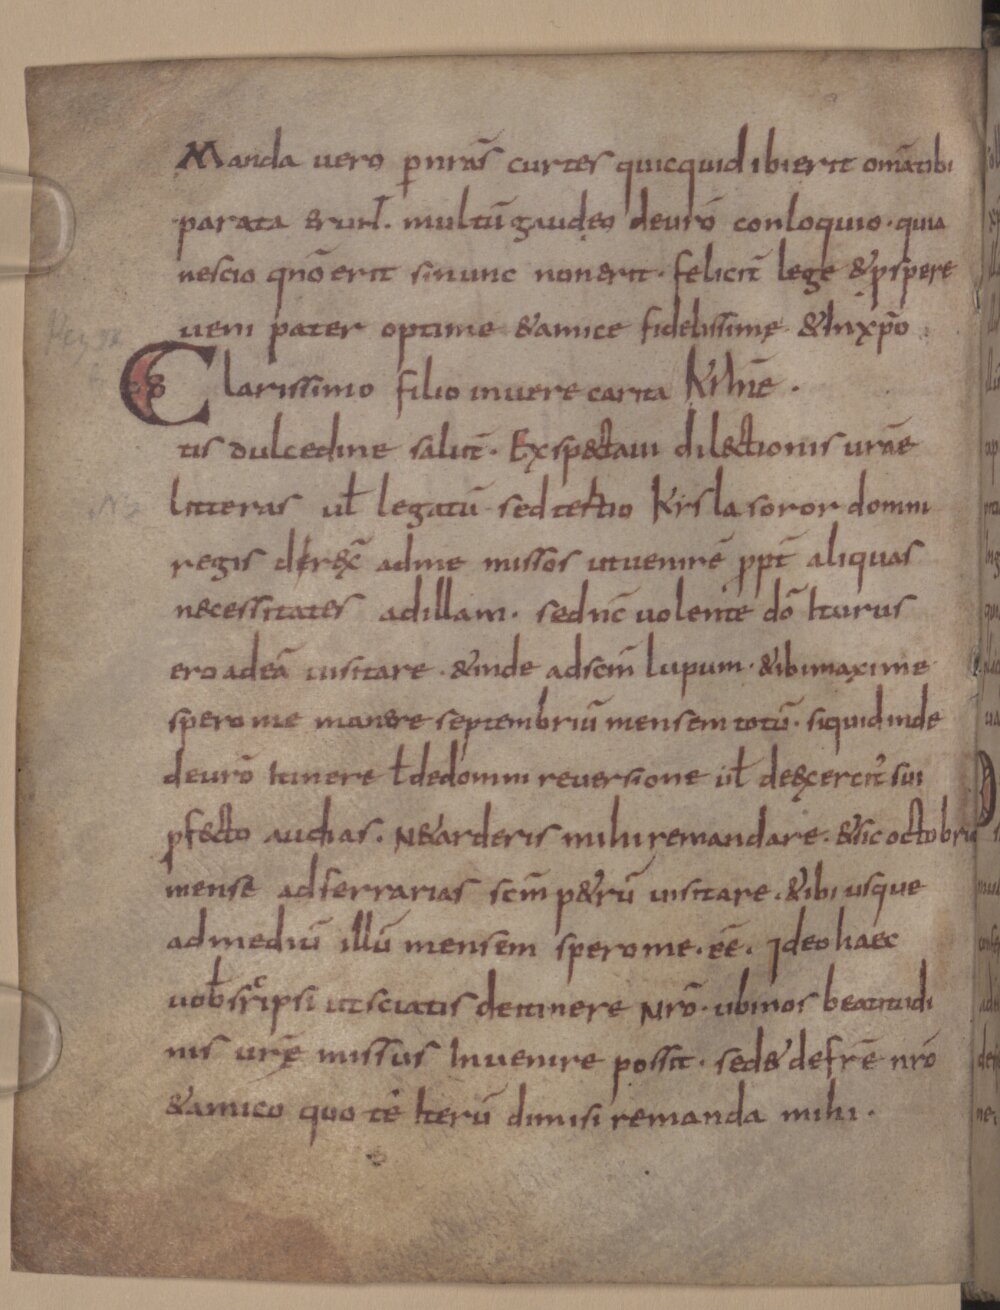 Manda vero p̱ nr̄as curtes quicquid ibi erit om̄a tibi
parata erunt. multū gaudeo de vr̄o conloquio· quia
nescio qn̄o erit si nunc non erit· felicit̄ lege & p̱spere
veni pater optime & amice fidelissimę & In xp̄o
Clarissimo filio in vere carita Krin̄e.
tis dulcedine salut̄· Exspectavi dilectionis vr̄ae
litteras vl̄ legatū sed
soror domni
regis direx̄ ad me missos ut venirē ppt̄ aliquas
necessitates ad illam· sed nc̄ volente dō Iturus
ero ad eā visitare· & inde ad scm̄ lupum· & ibi maxime
spero me manere septembriū mensem totū· si quid inde
de vr̄o Itinere t̄ de domni reversione vl̄ de exercit᾽ sui
p̱fecto audias. Ne tarderis mihi remandare· & sic octobrio
mense ad ferrarias scm̄ petrū visitare· & ibi usque
ad mediū illū mensem spero me· eē. Ideo haec
vob̄ scripsi ut sciatis de itinere Nr̄o· ubi nos beatitudi
nis vr̄ę missus Invenire possit· sed & de fr̄e nr̄o
& amico quo tē Iterū dimisi remanda mihi·